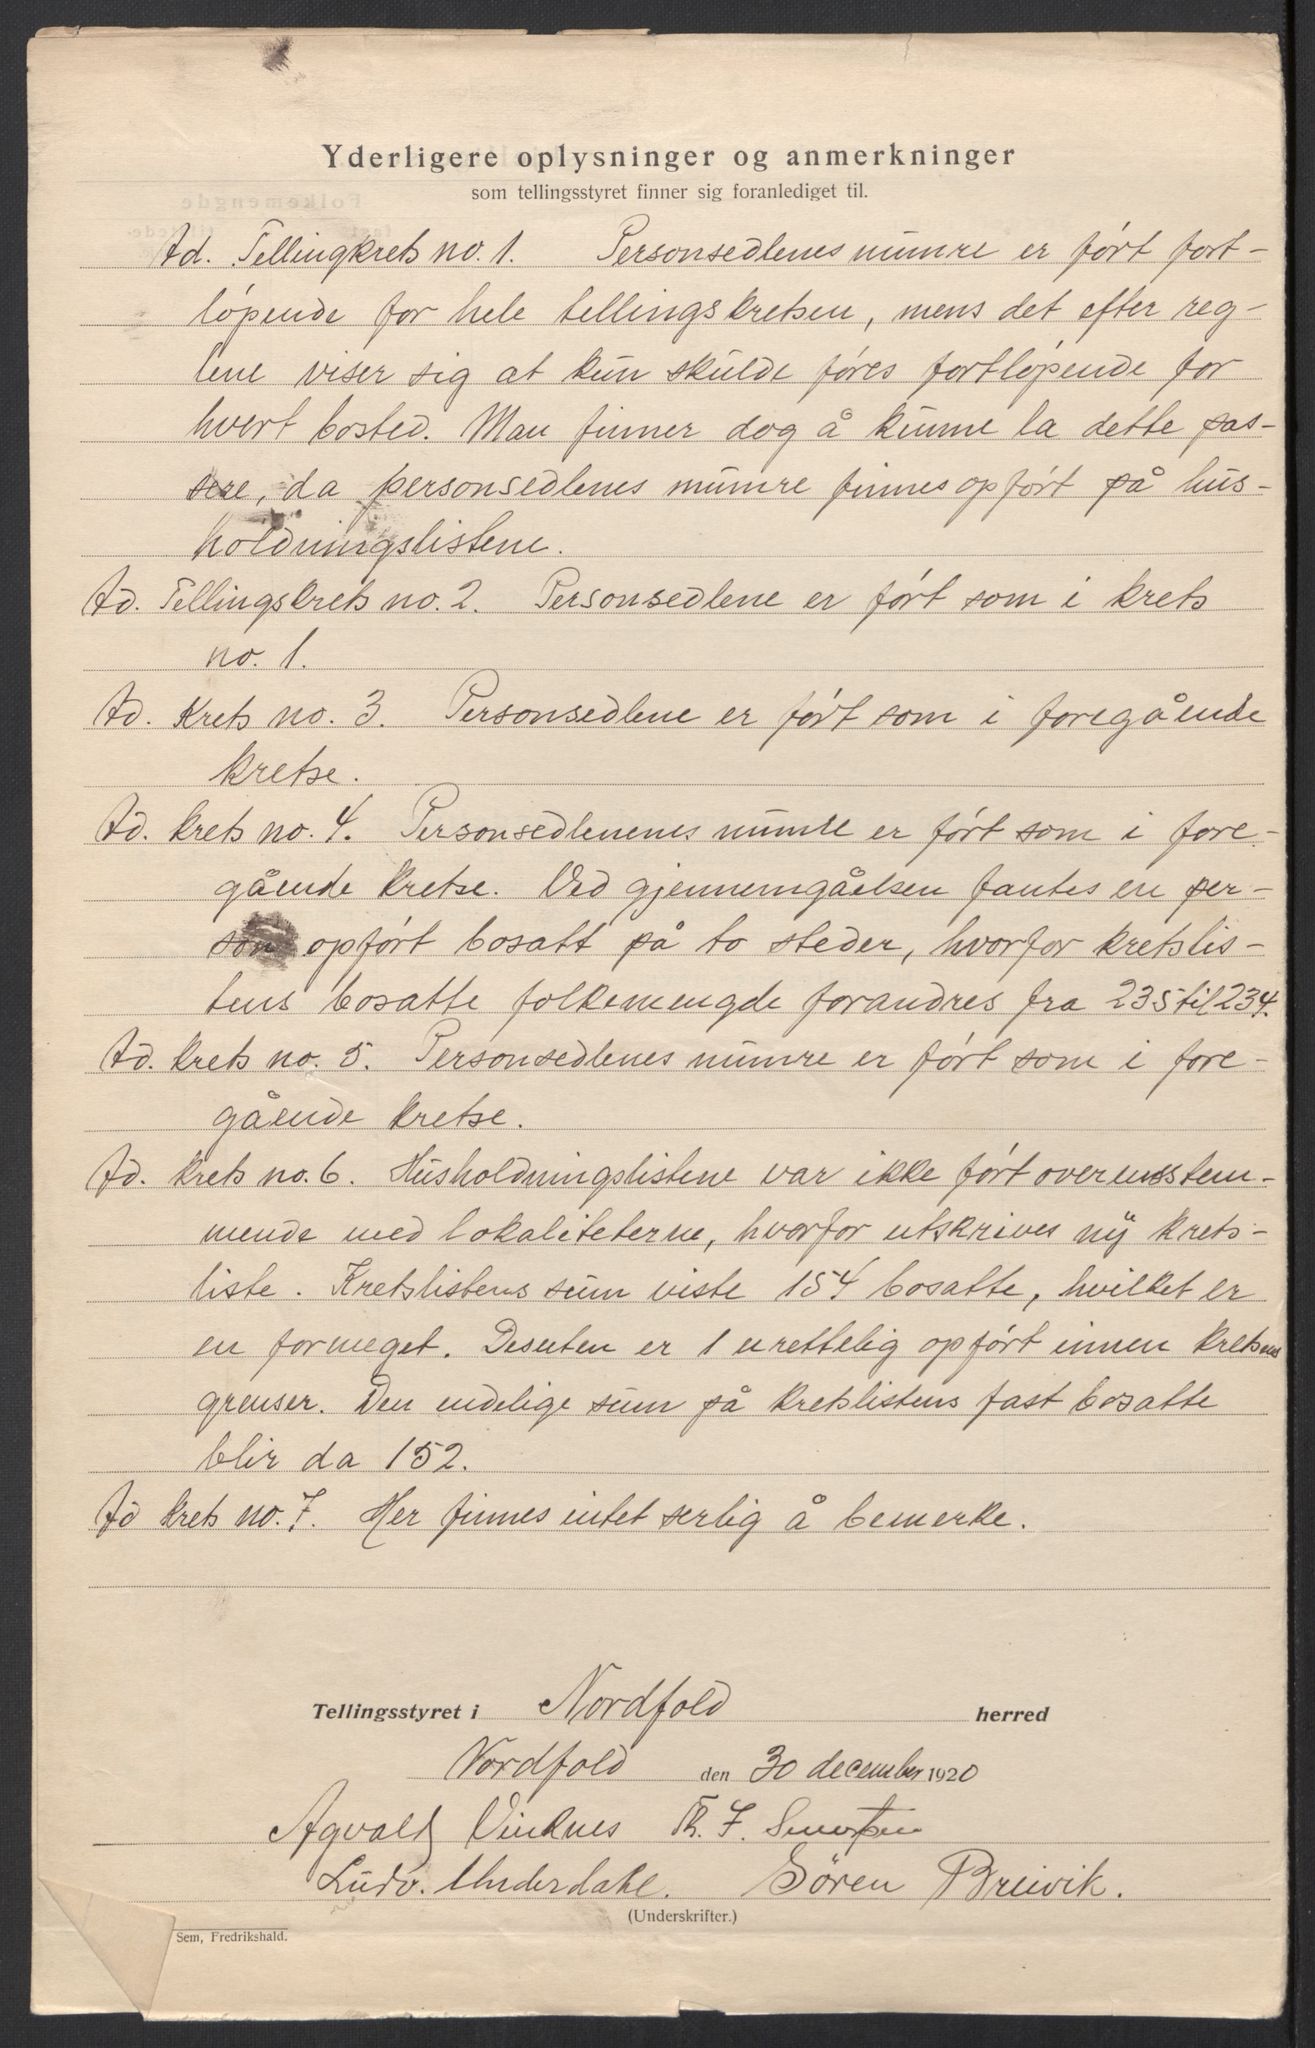 Yderligere oplysninger og anmerkninger
som tellingsstyret finner sig foranlediget til.
Ad. Tellingkrets no. 1. Personsedlenes numre er ført fort-
løpende for hele tellingskretsen, mens det efter reg-
lene viser sig at kun skulde føres fortløpende for
hvert bosted. Man finner dog å kunne la dette pas-
sere, da personsedlenes numre finnes opført på hus-
holdningslistene.
Ad. Tellingskrets no. 2. Personsedlene er ført som i krets
no. 1.
Ad. Krets no. 3. Personsedlene er ført som i foregående
kretse.
Ad. krets no. 4. Personsedlenenes numre er ført som i fore-
gående kretse. Ved gjennemgåelsen fantes en per-
son opført bosatt på to steder, hvorfor kretslis-
tens bosatte folkemengde forandres fra 235 til 234.
Ad. krets no. 5. Personsedlenes numre er ført som i fore-
gående kretse.
Ad. krets no. 6. Husholdningslistene var ikke ført overensstem-
mende med lokaliteterne, hvorfor utskrives ny krets-
liste. Kretslistens sum viste 154 bosatte, hvilket er
en formeget. Desuten er 1 urettelig opført innen kretsens
grenser. Den endelige sum på kretslistens fast bosatte
blir da 152.
Ad krets no. 7. Her finnes intet serlig å bemerke.
Tellingsstyret i Nordfold herred
Nordfold den 30 december 1920
Agvald Vinknes Th. J.
Ludv. Underdahl. Søren Breivik.
(Underskrifter.)
Sem, Fredrikshald.